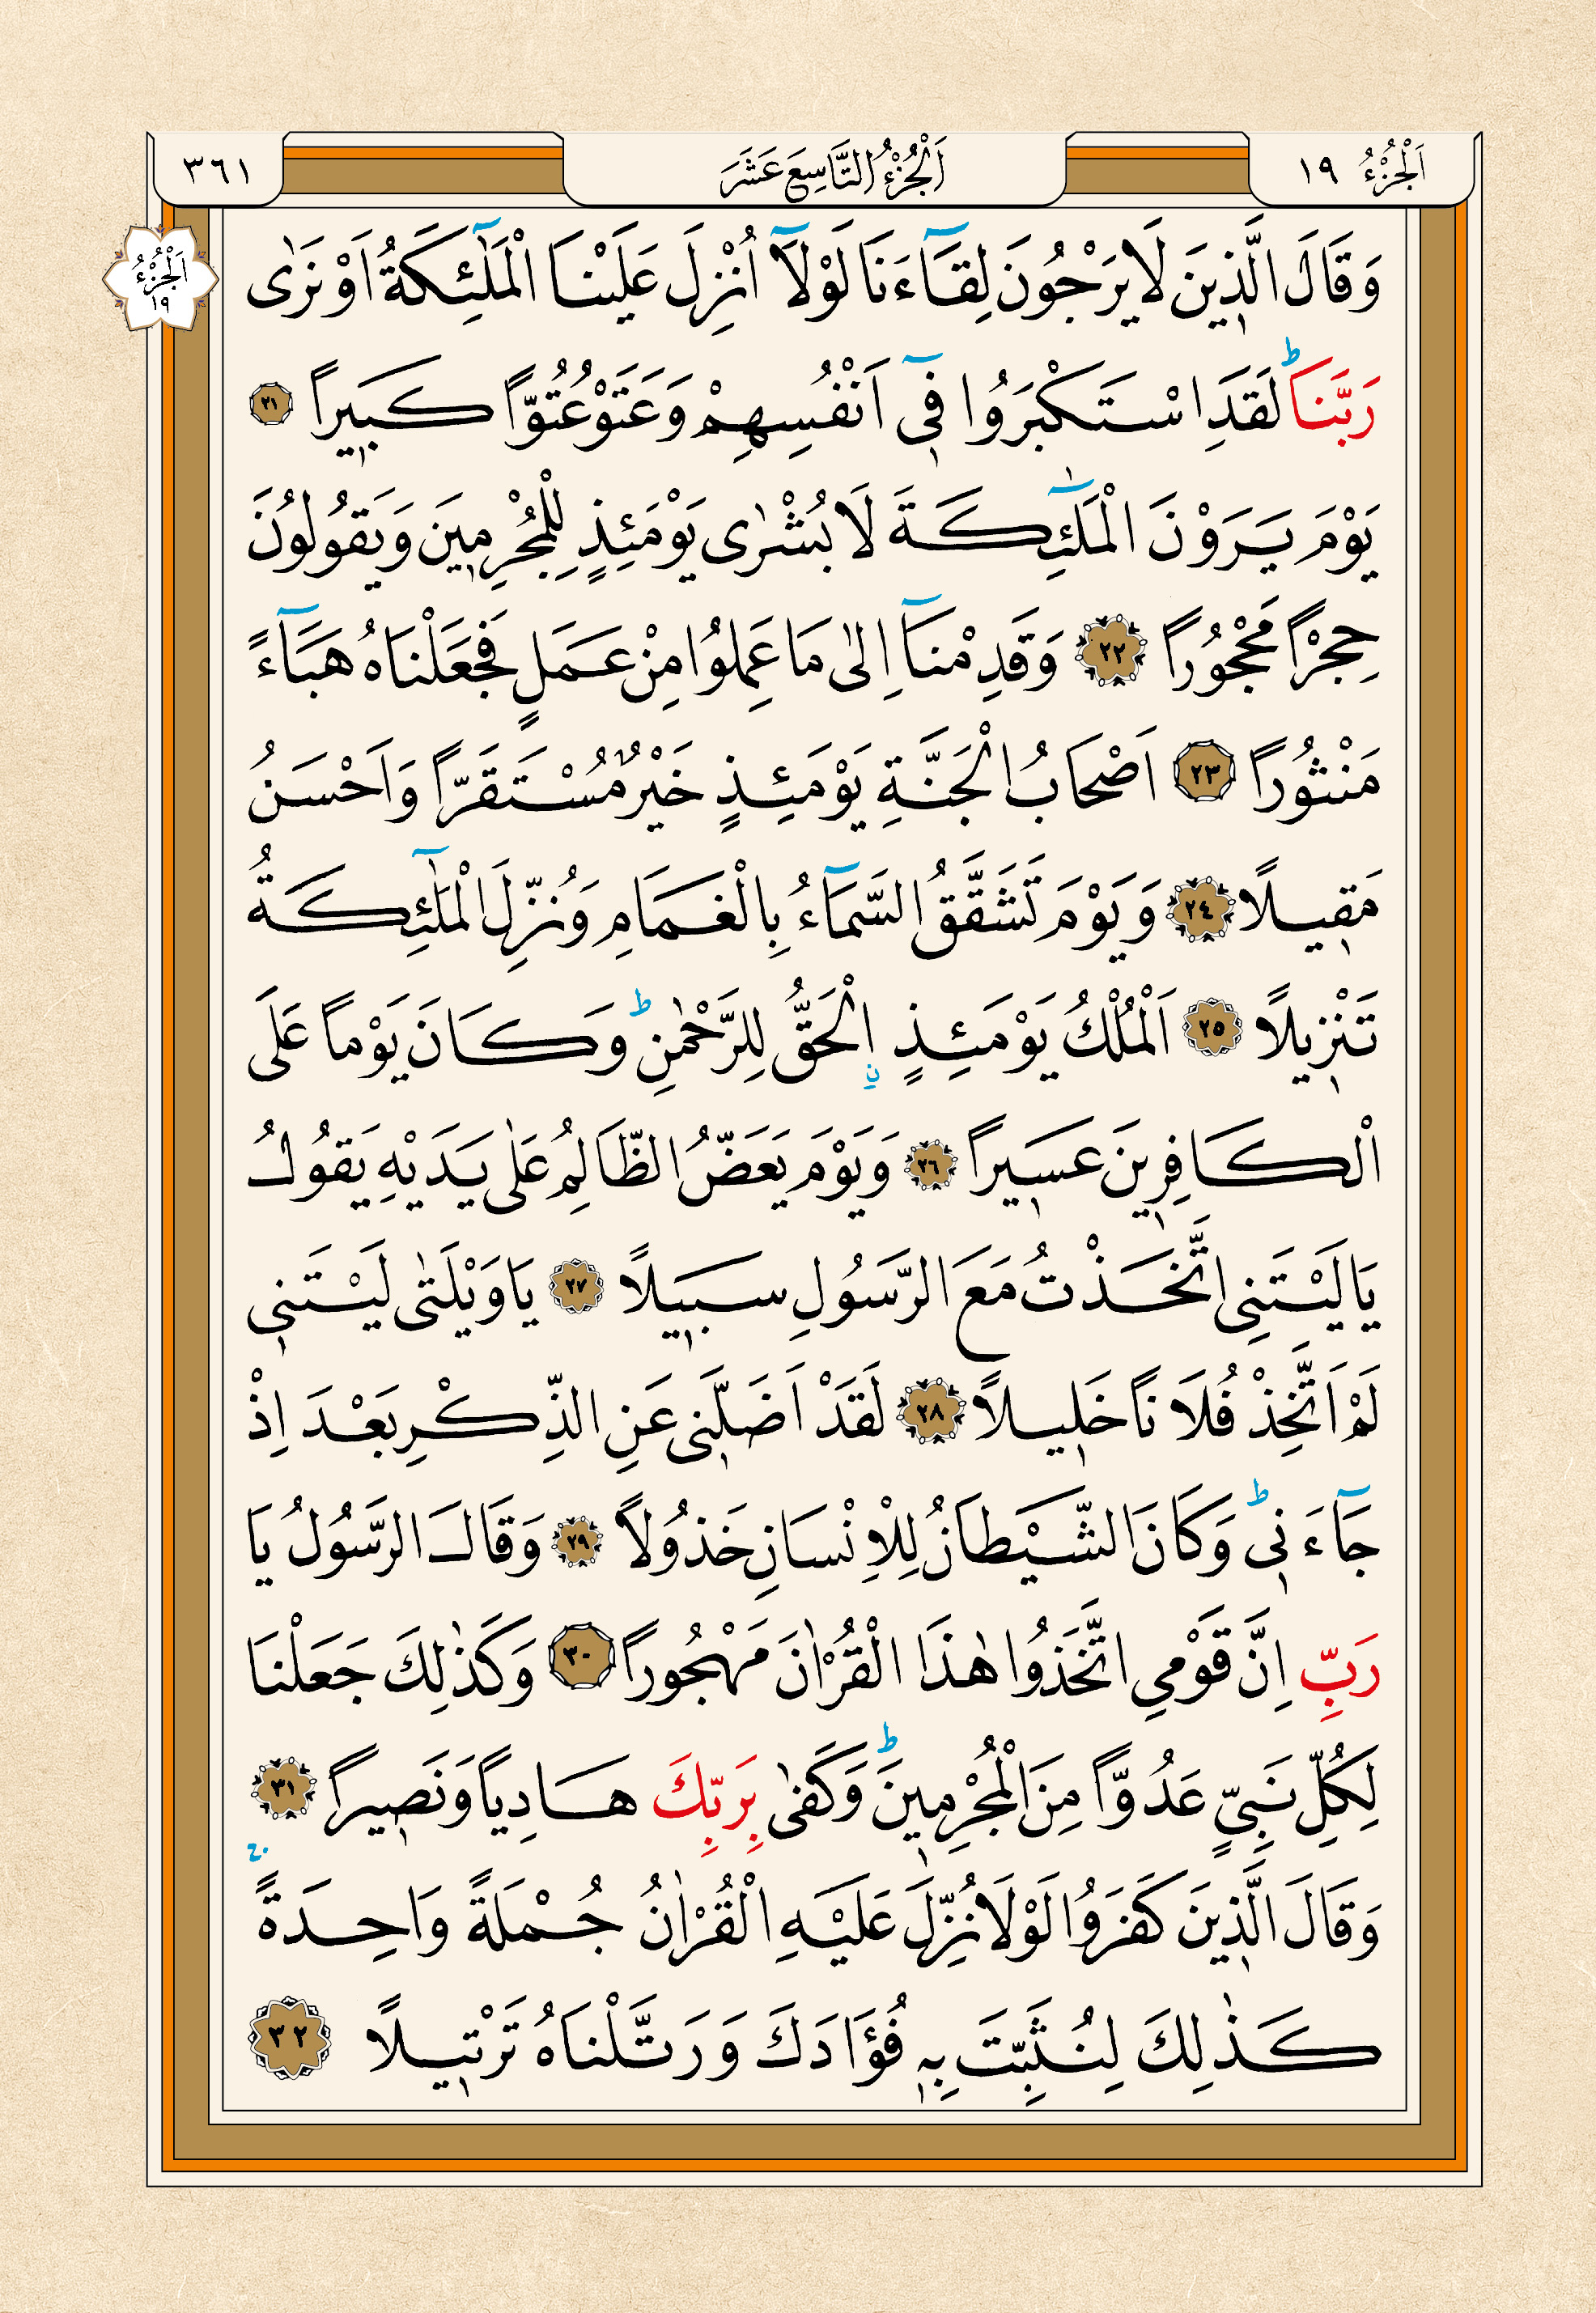 اَلْجُزْءُ ١٩
اَلْجُزْءُ التَّاسِعَ عَشَرَ
٣٦١
اَلْجُزْءُ
١٩
وَقَالَ الَّذ۪ينَ لَا يَرْجُونَ لِقَٓاءَنَا لَوْلَٓا اُنْزِلَ عَلَيْنَا الْمَلٰٓئِكَةُ اَوْ نَرٰى
رَبَّنَاۜ لَقَدِ اسْتَكْبَرُوا ف۪ٓي اَنْفُسِهِمْ وَعَتَوْ عُتُوًّا كَب۪يرًا ٢١
يَوْمَ يَرَوْنَ الْمَلٰٓئِكَةَ لَا بُشْرٰى يَوْمَئِذٍ لِلْمُجْرِم۪ينَ وَيَقُولُونَ
حِجْرًا مَحْجُورًا ٢٢ وَقَدِمْنَٓا اِلٰى مَا عَمِلُوا مِنْ عَمَلٍ فَجَعَلْنَاهُ هَبَٓاءً
مَنْثُورًا ٢٣ اَصْحَابُ الْجَنَّةِ يَوْمَئِذٍ خَيْرٌ مُسْتَقَرًّا وَاَحْسَنُ
مَق۪يلًا ٢٤ وَيَوْمَ تَشَقَّقُ السَّمَٓاءُ بِالْغَمَامِ وَنُزِّلَ الْمَلٰٓئِكَةُ
تَنْز۪يلًا ٢٥ اَلْمُلْكُ يَوْمَئِذٍ اِۨلْحَقُّ لِلرَّحْمٰنِۜ وَكَانَ يَوْمًا عَلَى
الْكَافِر۪ينَ عَس۪يرًا ٢٦ وَيَوْمَ يَعَضُّ الظَّالِمُ عَلٰى يَدَيْهِ يَقُولُ
يَا لَيْتَنِي اتَّخَذْتُ مَعَ الرَّسُولِ سَب۪يلًا ٢٧ يَا وَيْلَتٰى لَيْتَن۪ي
لَمْ اَتَّخِذْ فُلَانًا خَل۪يلًا ٢٨ لَقَدْ اَضَلَّن۪ي عَنِ الذِّكْرِ بَعْدَ اِذْ
جَٓاءَن۪يۜ وَكَانَ الشَّيْطَانُ لِلْاِنْسَانِ خَذُولًا ٢٩ وَقَالَ الرَّسُولُ يَا
رَبِّ اِنَّ قَوْمِي اتَّخَذُوا هٰذَا الْقُرْاٰنَ مَهْجُورًا ٣٠ وَكَذٰلِكَ جَعَلْنَا
لِكُلِّ نَبِيٍّ عَدُوًّا مِنَ الْمُجْرِم۪ينَۜ وَكَفٰى بِرَبِّكَ هَادِيًا وَنَص۪يرًا ٣١
وَقَالَ الَّذ۪ينَ كَفَرُوا لَوْلَا نُزِّلَ عَلَيْهِ الْقُرْاٰنُ جُمْلَةً وَاحِدَةًۚ
كَذٰلِكَ لِنُثَبِّتَ بِه۪ فُؤَادَكَ وَرَتَّلْنَاهُ تَرْت۪يلًا ٣٢